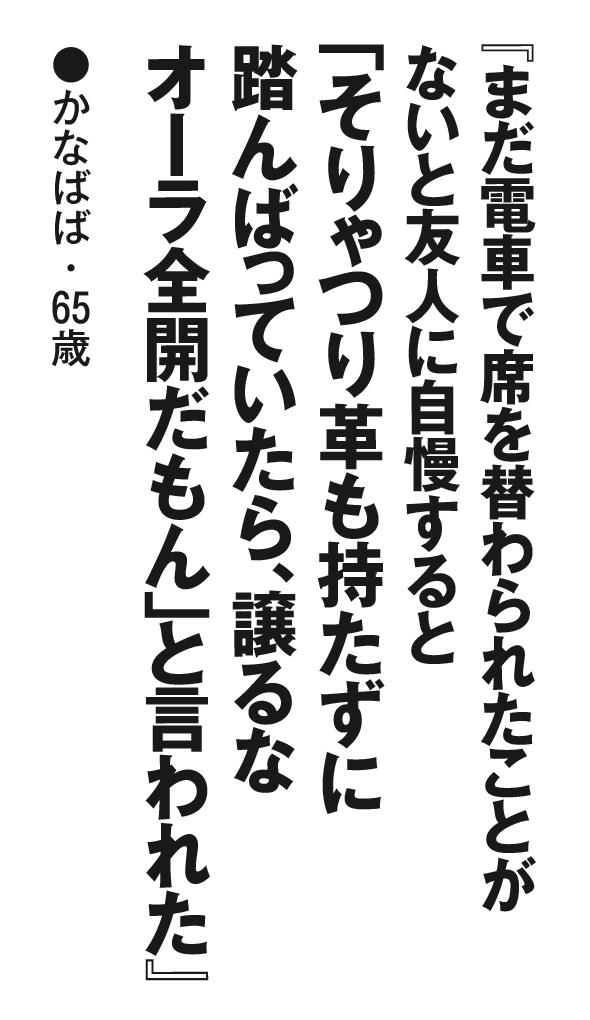 『まだ電車で席を替わられたことが
ないと友人に自慢すると
「そりゃつり革も持たずに
踏んばっていたら、譲るな
オーラ全開だもん」と言われた』
●かなばば・65歳